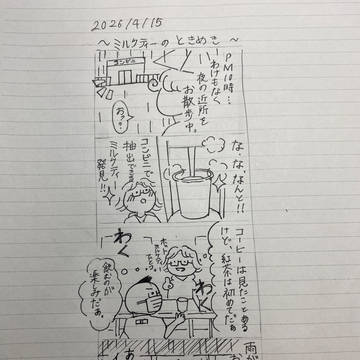 2026/4/15
～ミルクティーのときめき～
PM10時…
わけもなく
夜の近所を
お散歩中。
コンビニ
おっ?
な、な、なんと!!
コンビニで
抽出できる
ミルクティ
発見!!
コーヒーは見たことある
けど、紅茶は初めてだぁ
わく
わく
飲むのが
楽しみだぁ。